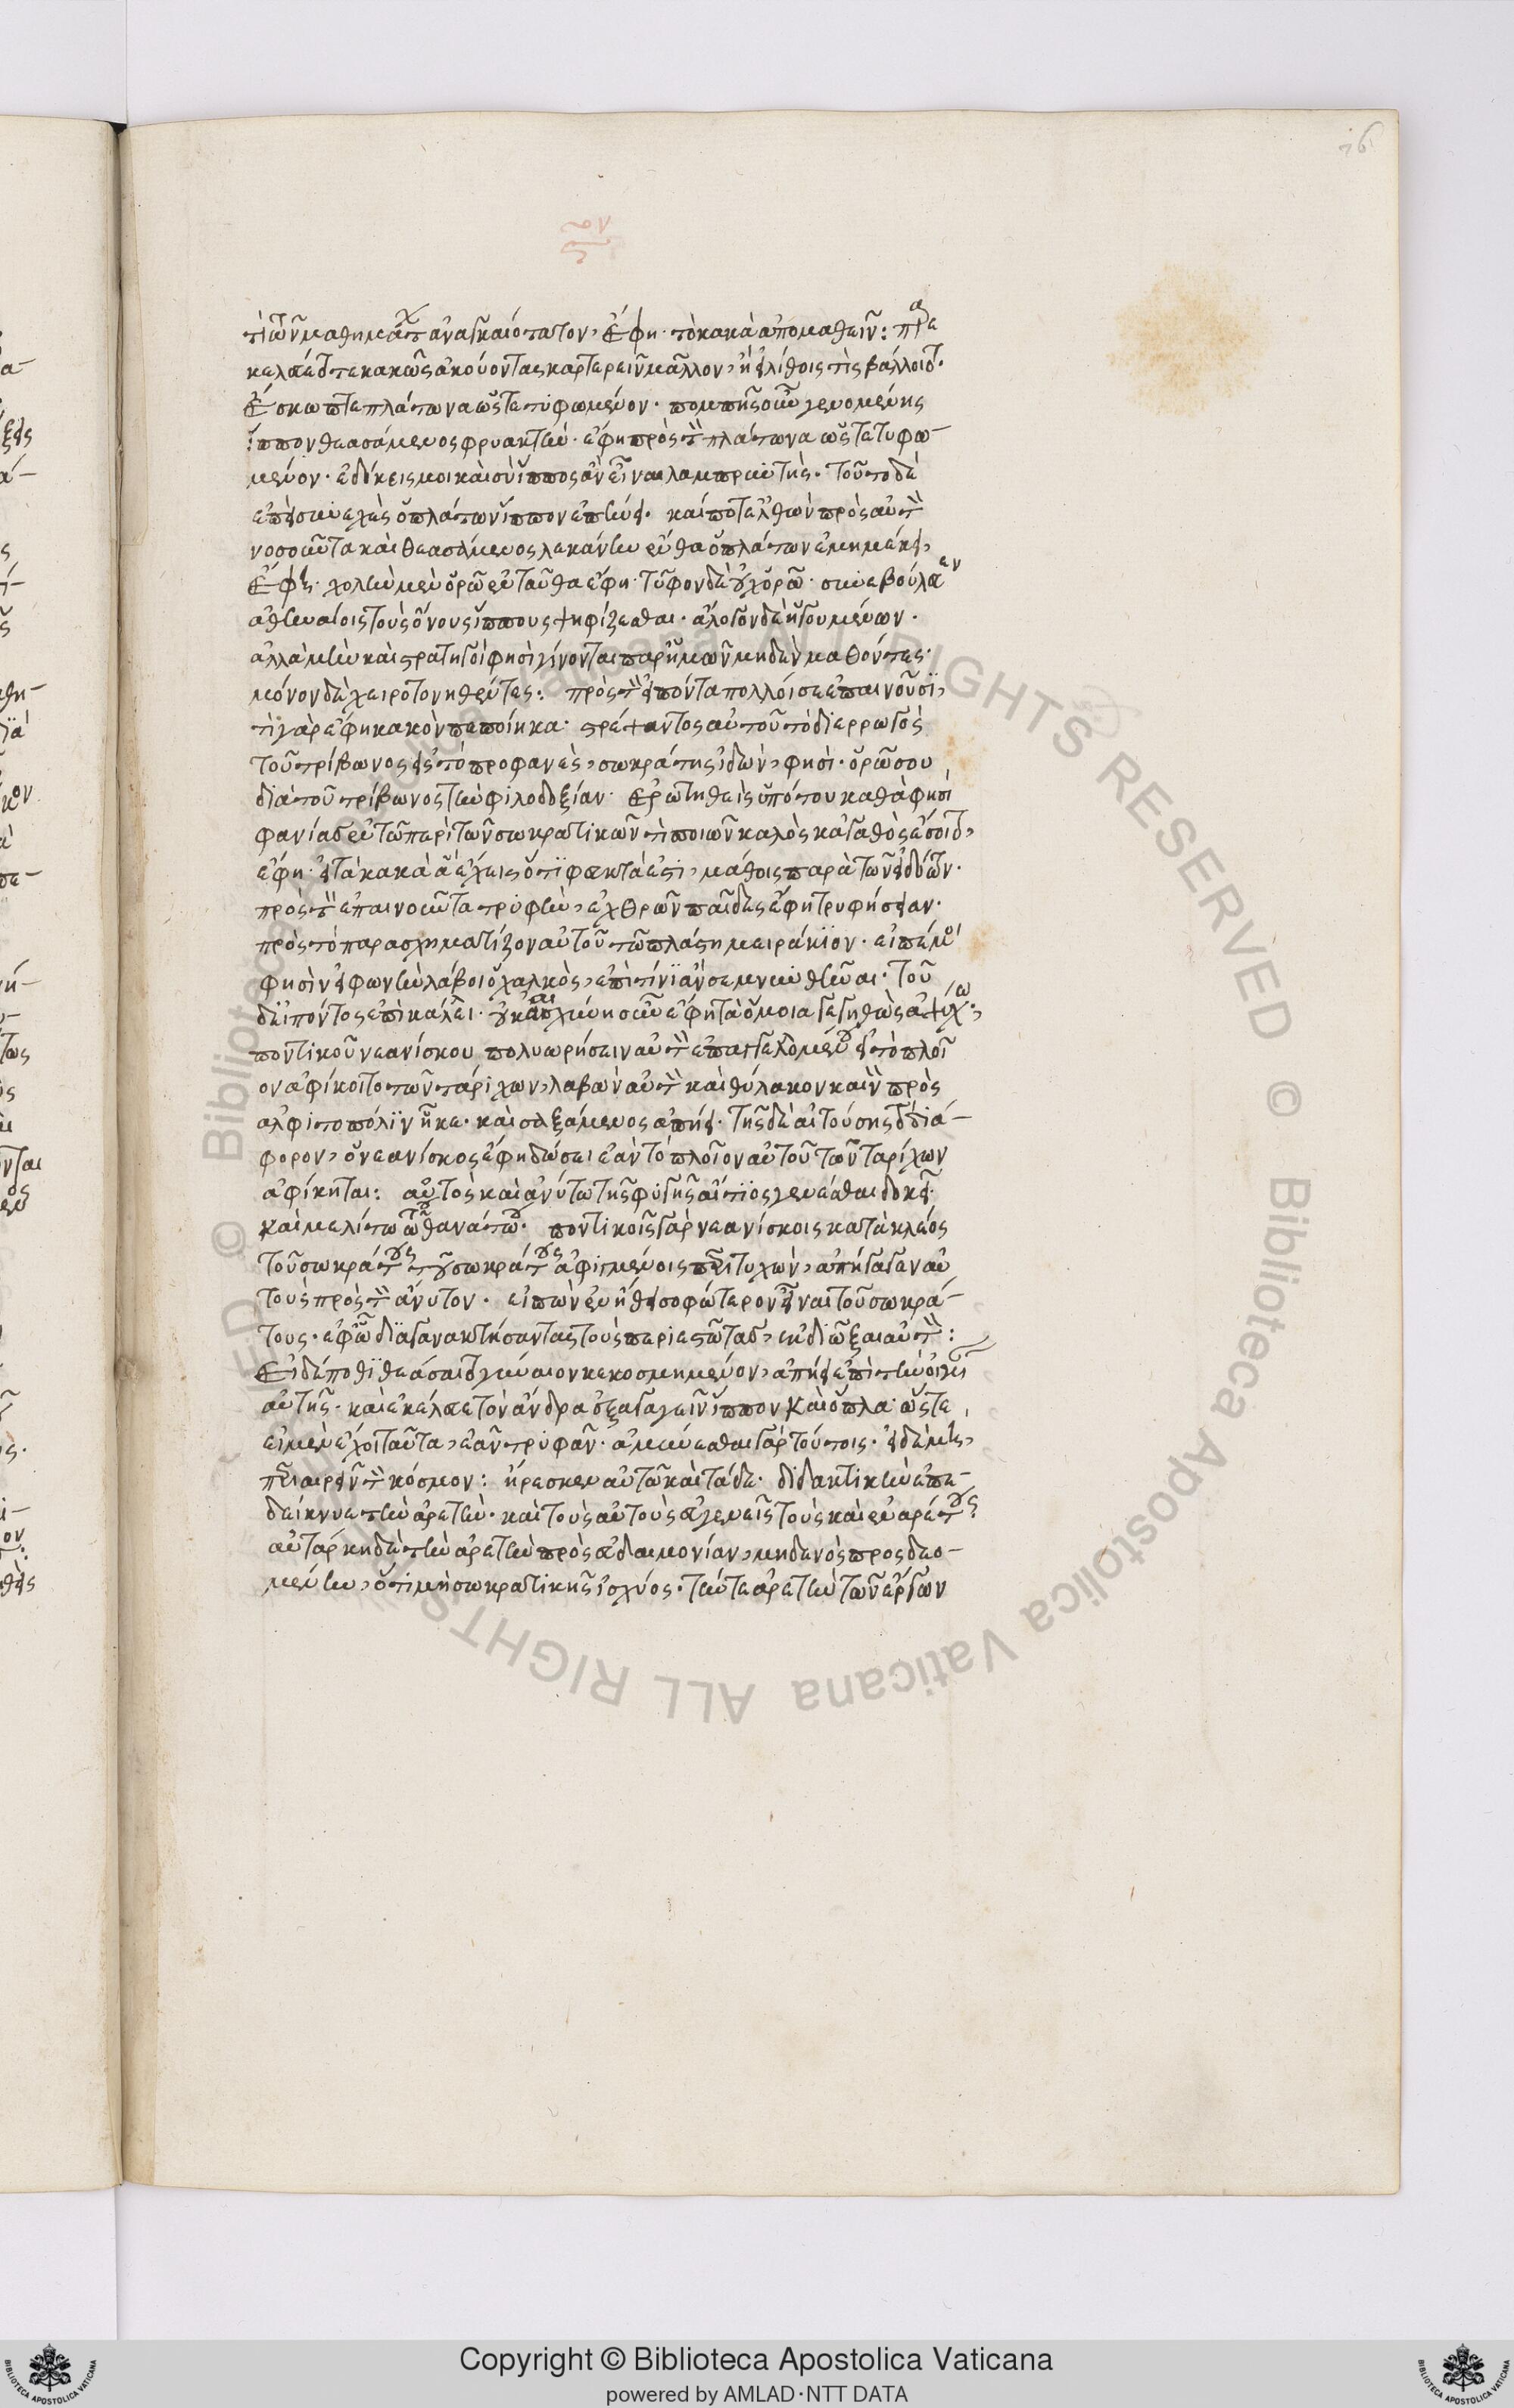 τί τῶν μαθημάτων ἀναγκαιότατον, ἔφη· τὸ κακὰ ἀπομαθεῖν: παρε
κελεύετό τε κακῶς ἀκούοντας καρτερεῖν μᾶλλον, ἢ εἰ λίθοις τίς βάλλοιτο·
Ἔσκωπτε πλάτωνα ὡς τετυφωμένον· πομπῆς οὖν γενομένης
ἵππον θεασάμενος φρυακτὴν· ἔφη πρὸς τὸν πλάτωνα ὡς τετυφω-
μένον· ἐδόκεις μοι καὶ σὺ ἵππος ἂν εἶναι λαμπρυντής· τοῦτο δὲ
ἐπεὶ συνεχὲς ὁ πλάτων ἵππον ἐπήνει· καί ποτε ἐλθὼν πρὸς αὐτὸν
νοσοῦντα καὶ θεασάμενος λεκάνην ἔνθα ὁ πλάτων ἐμημέκει,
Ἔφη· χολὴν μὲν ὁρῶ ἐνταῦθα ἔφη· τῦφον δὲ οὐχ ὁρῶ· συνεβούλευεν
ἀθηναίοις τοὺς ὄνους ἵππους ψηφίζεσθαι· ἄλογον δὲ ἡγουμένων·
ἀλλὰ μὴν καὶ στρατηγοί φησὶ γίνονται παρ' ἡμῶν μηδὲν μαθόντες·
μόνον δὲ χειροτονηθέντες: πρὸς τὸν εἰπόντα πολλοί σε ἐπαινοῦσϊ,
τί γὰρ ἔφη κακὸν πεποίηκα· στρέψαντος αὐτοῦ τὸ διερρωγὸς
τοῦ τρίβωνος εἰς τὸ προφανὲς, σωκράτης ἰδὼν, φησί· ὁρῶ σου
διὰ τοῦ τρίβωνος τὴν φιλοδοξίαν· Ἐρωτηθεὶς ὑπό του καθά φησι
φανίας ἐν τῶ περὶ τῶν σωκρατικῶν τί ποιῶν καλὸς κἀγαθὸς ἔσοιτο,
ἔφη· εἰ τὰ κακὰ ἃ ἔχεις ὅτϊ φευκτά ἐστι, μάθοις παρὰ τῶν εἰδότων·
πρὸς τὸν ἐπαινοῦντα τρυφὴν, ἐχθρῶν παῖδες ἔφη τρυφήσειαν·
πρὸς τὸ παρασχηματίζον αὑτοῦ τῶ πλάστη μειράκϊον· εἰπέ μοι
φησὶν εἰ φωνὴν λάβοι ὁ χαλκὸς, ἐπὶ τίνϊ ἂν σεμνυνθῆναι· τοῦ
δ' εἰπόντος ἐπὶ κάλλει· οὐκ αἰσχύνη οὖν ἔφη τὰ ὅμοια γεγηθὼς ἀψύχω·
ποντικοῦ νεανίσκου πολυωρήσειν αὐτὸν ἐπαγγελλομένου εἰ τὸ πλοῖ
ον ἀφίκοιτο τῶν ταρίχων, λαβὼν αὐτὸν καὶ θύλακον κενὸν πρὸς
ἀλφιτοπόλϊν ἧκε· καὶ σαξάμενος ἀπήει· τῆς δὲ αἰτούσης τὸ διά-
φορον, ὁ νεανίσκος ἔφη δώσει ἐὰν τὸ πλοῖον αὐτοῦ τῶν ταρίχων
ἀφίκηται: αὐτὸς καὶ ἀνύτω τῆς φυγῆς αἴτιος γενέσθαι δοκεῖ·
καὶ μελίτω τοῦ θανάτου· ποντικοῖς γὰρ νεανίσκοις κατὰ κλέος
τοῦ σωκράτους τοῦ σωκράτους ἀφιγμένοις περιτυχὼν, ἀπήγαγεν αὐ
τοὺς πρὸς τὸν ἄνυτον· εἰπὼν ἐν ἤθει σοφώτερον εἶναι τοῦ σωκρά-
τους· ἐφ' ὧ διαγανακτήσαντας τοὺς περιεστῶτας, ἐκδιῶξαι αὐτόν:
Εἰ δέ ποθϊ θεάσαιτο γύναιον κεκοσμημένον, ἀπήει ἐπὶ τὴν οἰκίαν
αὐτῆς· καὶ ἐκέλευε τὸν ἄνδρα ἐξαγαγεῖν ἵππον καὶ ὅπλα· ὥστε
εἰ μὲν ἔχοι ταῦτα, ἐᾶν τρυφᾶν· ἀμύνεσθαι γὰρ τούτοις· εἰ δὲ μὴ,
περιαιρεῖν τὸν κόσμον: ἤρεσκεν αὐτῶ καὶ τάδε· διδακτικὴν ἐπε-
δείκνυε τὴν ἀρετὴν· καὶ τοὺς αὐτοὺς εὐγενεῖς τοὺς καὶ ἐναρέτους·
αὐτάρκη δὲ τὴν ἀρετὴν πρὸς εὐδαιμονίαν, μηδενὸς προςδεο-
μένην, ὅτι μὴ σωκρατικῆς ἰσχύος· τήν τε ἀρετὴν τῶν ἔργων
Copyright © Biblioteca Apostolica Vaticana
powered by AMLAD·NTT DATA